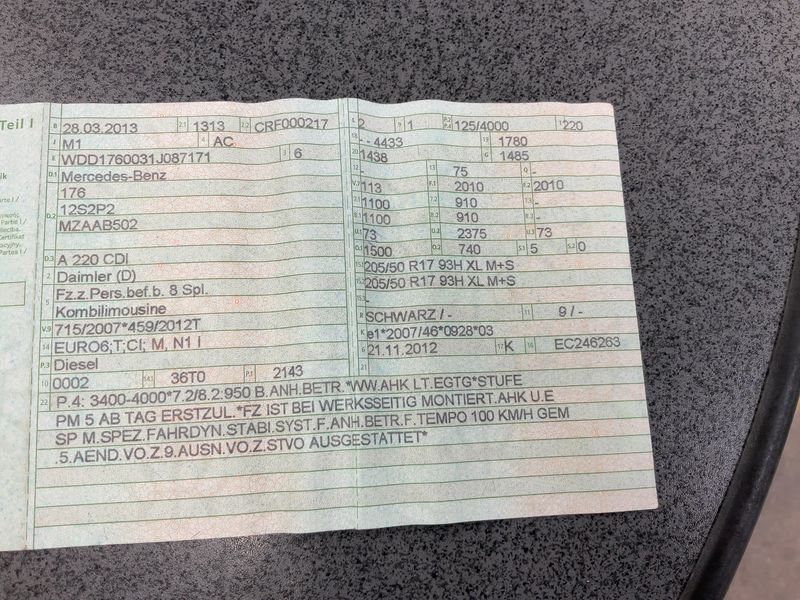 Teil I
B 28.03.2013 2.1 1313 2.2 CRF000217
J M1 4 AC
E WDD1760031J087171 3 6
D.1 Mercedes-Benz
176
D.2 12S2P2
MZAAB502
D.3 A 220 CDI
2 Daimler (D)
5 Fz.z.Pers.bef.b. 8 Spl.
Kombilimousine
V.9 715/2007*459/2012T
14 EURO6;T;CI; M, N1 I
P.3 Diesel
10 0002 14.1 36T0 P.1 2143
L 2 9 1 P.2 125/4000 T 220
18 - 4433 19 1780
20 1438 G 1485
12 - 13 75 Q -
V.7 113 F.1 2010 F.2 2010
7.1 1100 7.2 910 7.3 -
8.1 1100 8.2 910 8.3 -
U.1 73 U.2 2375 U.3 73
O.1 1500 O.2 740 S.1 5 S.2 0
15.1 205/50 R17 93H XL M+S
15.2 205/50 R17 93H XL M+S
15.3 -
R SCHWARZ / - 11 9 / -
K e1*2007/46*0928*03
6 21.11.2012 17 K 16 EC246263
21
22 P.4: 3400-4000*7.2/8.2:950 B.ANH.BETR.*WW.AHK LT.EGTG*STUFE
PM 5 AB TAG ERSTZUL.*FZ IST BEI WERKSSEITIG MONTIERT.AHK U.E
SP M.SPEZ.FAHRDYN.STABI.SYST.F.ANH.BETR.F.TEMPO 100 KM/H GEM
.5.AEND.VO.Z.9.AUSN.VO.Z.STVO AUSGESTATTET*